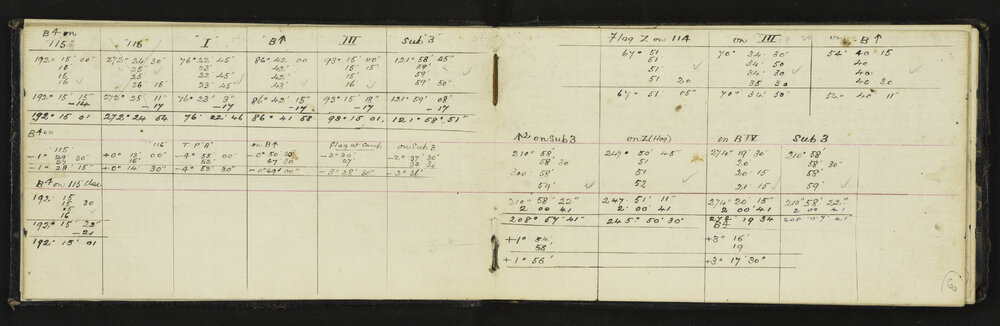 B↑ on "115" "116" "I" "B↑ III Sub 3
192° 15' 00" 272° 24' 30" 76° 22' 45" 86° 42' 00 93° 15' 00" 121° 58' 45"
15' 25 23' 42' 15 15 59'
15 25 22' 45" 42' 15 59'
16 26 15 23' 45" 43' 16 59' 30
192° 15' 15" 272° 25' 11" 76° 23' 3" 86° 42' 15" 93° 15' 18" 121° 59' 08"
-14 -17 -17 -17 -17 -17
192° 15 01 272° 24 54 76° 22' 46 86° 41 58 93° 15 01. 121° 58'. 51"
B↑ on
"115" "116 T.P."A" on B↑ Flag at Camp on Sub 3
-1° 29' 30 +0° 13' 00 -4° 55' 00 -0° 50 30 -3° 30' -2° 37' 30
27 15' 52' 47 30 27
-1° 28' 15" +0° 14' 30" -4° 53' 30" -0° 49' 00" -3° 28' 30" -2° 31'
B↑ on 115 Close
192. 15
15 30
15
16
192° 15' 22"
-21
192° 15' 01
Flag Z on 114 on III on B↑
67° 51 70° 34' 30" 52° 40 15
51' 34' 50 40
51' 34' 30 40
51 20 35 30 40 30
67° 51 05" 70° 34' 50" 52° 40' 11"
↑2 on Sub 3 on Z (Flag) on B IV Sub 3
210° 58' 247° 50' 45" 274° 19 30 210° 58'
58 30 51 20 58' 30
300. 58' 51 20 15 58'
59' 52 21 15 59'
210° 58' 22" 247. 51' 11" 274° 20' 15" 210° 58' 22"
2 00 41 2 00' 41 2 00' 41 2 00 41
208° 57' 41" 245° 50' 30" 272 19 34 208 57 41
B↑
+1° 54. +3° 16'
58' 19
+1° 56' +3° 17' 30"
60